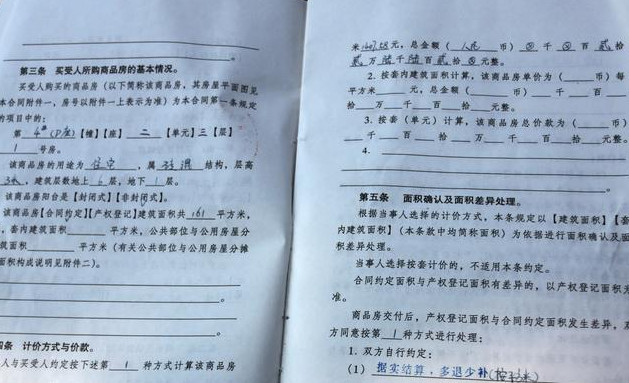 第三条 买受人所购商品房的基本情况。
买受人购买的商品房(以下简称该商品房,其房屋平面图见
本合同附件一,房号以附件一上表示为准)为本合同第一条规定
的项目中的:
第 4#(D座)【幢】【座】 二 【单元】三【层】
1 号房。
该商品房的用途为 住宅 ,属 砖混 结构,层高
,建筑层数地上 6 层,地下 1 层。
该商品房阳台是【封闭式】【非封闭式】。
该商品房【合同约定】【产权登记】建筑面积共 161 平方米,
,套内建筑面积 平方米,公共部位与公用房屋分
筑面积 平方米(有关公共部位与公用房屋分摊
面积构成说明见附件二)。
四条 计价方式与价款。
人与买受人约定按下述第 1 种方式计算该商品房
米 元,总金额( 人民 币) ⊗ 千 ⊗ 百 贰 拾
贰 万 陆 千 陆 百 贰 拾 ⊗ 元整。
2. 按套内建筑面积计算,该商品房单价为( 币)每
平方米 元,总金额( 币) 千 百
拾 万 千 百 拾 元整。
3. 按套(单元)计算,该商品房总价款为( 币)
千 百 拾 万 千 百 拾 元整。
4.
第五条 面积确认及面积差异处理。
根据当事人选择的计价方式,本条规定以【建筑面积】【套
内建筑面积】(本条款中均简称面积)为依据进行面积确认及面
积差异处理。
当事人选择按套计价的,不适用本条约定。
合同约定面积与产权登记面积有差异的,以产权登记面积为
准。
商品房交付后,产权登记面积与合同约定面积发生差异,双
方同意按第 1 种方式进行处理:
1. 双方自行约定:
(1) 据实结算,多退少补